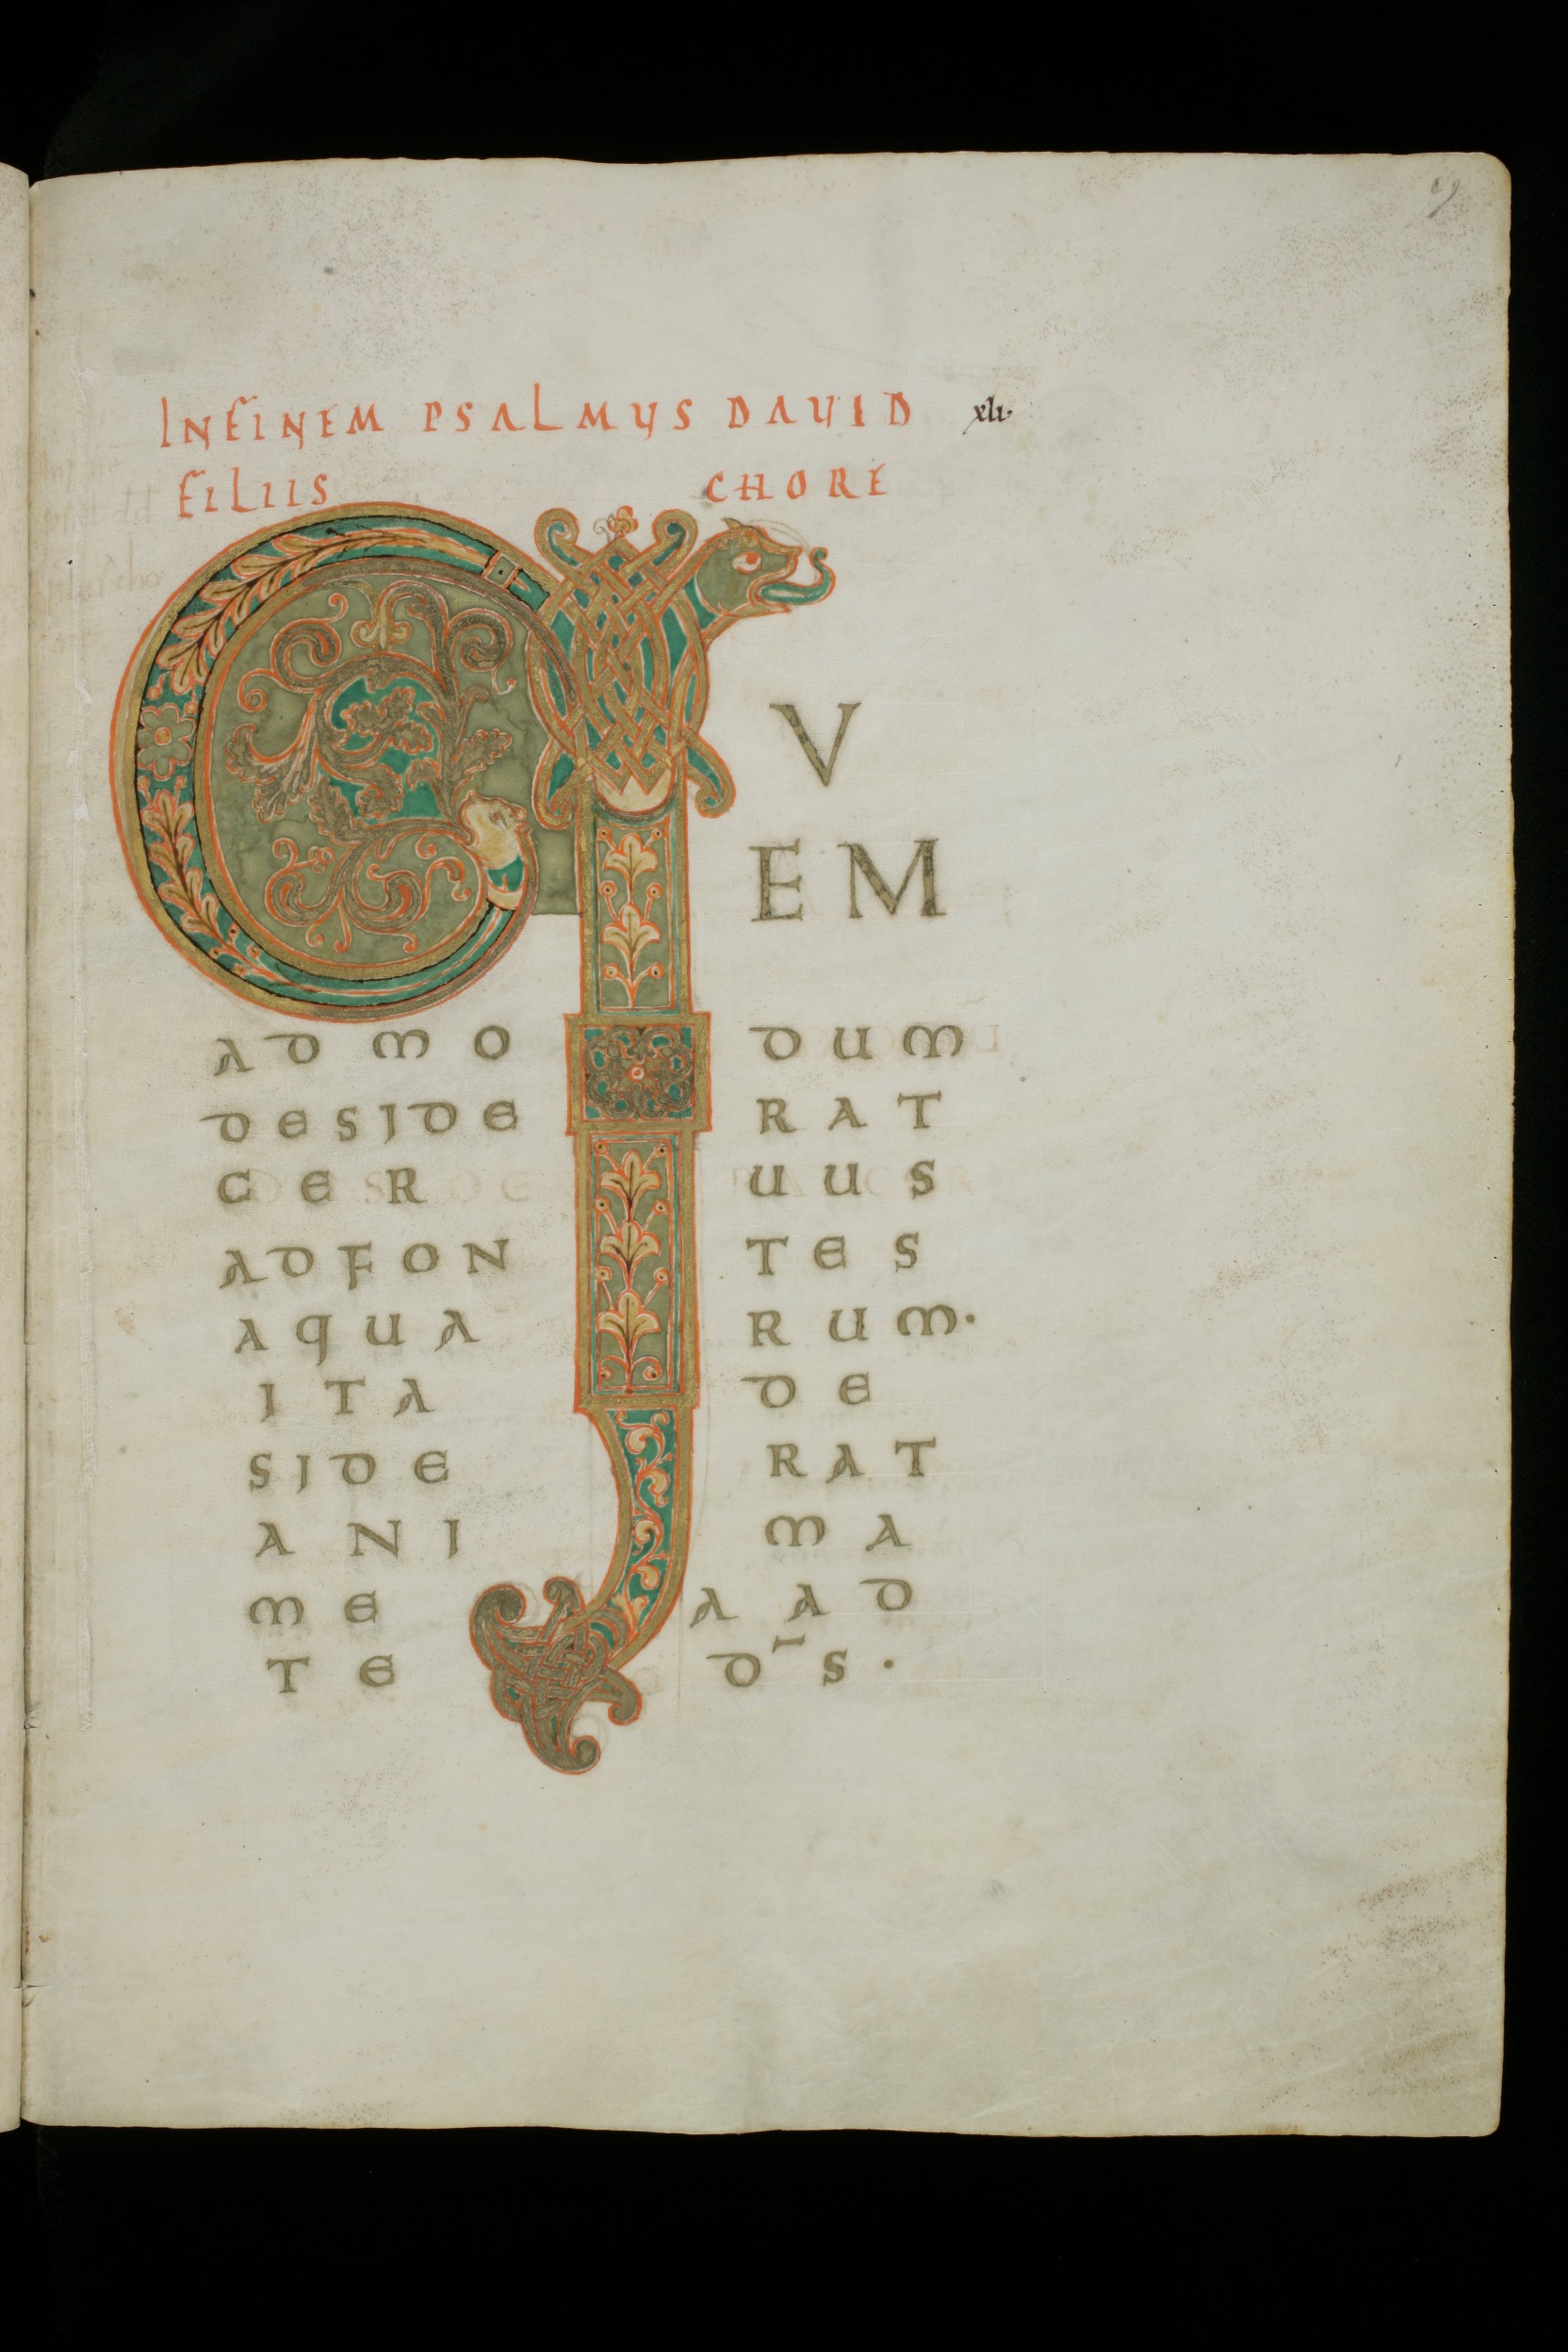 INFINEM PSALMUS DAUID xli.
FILIIS CHORE
QV
EM
ADMO DUM
DESIDE RAT
CER UUS
ADFON TES
AQUA RUM.
ITA DE
SIDE RAT
ANI MA
ME A AD
TE DS̄.